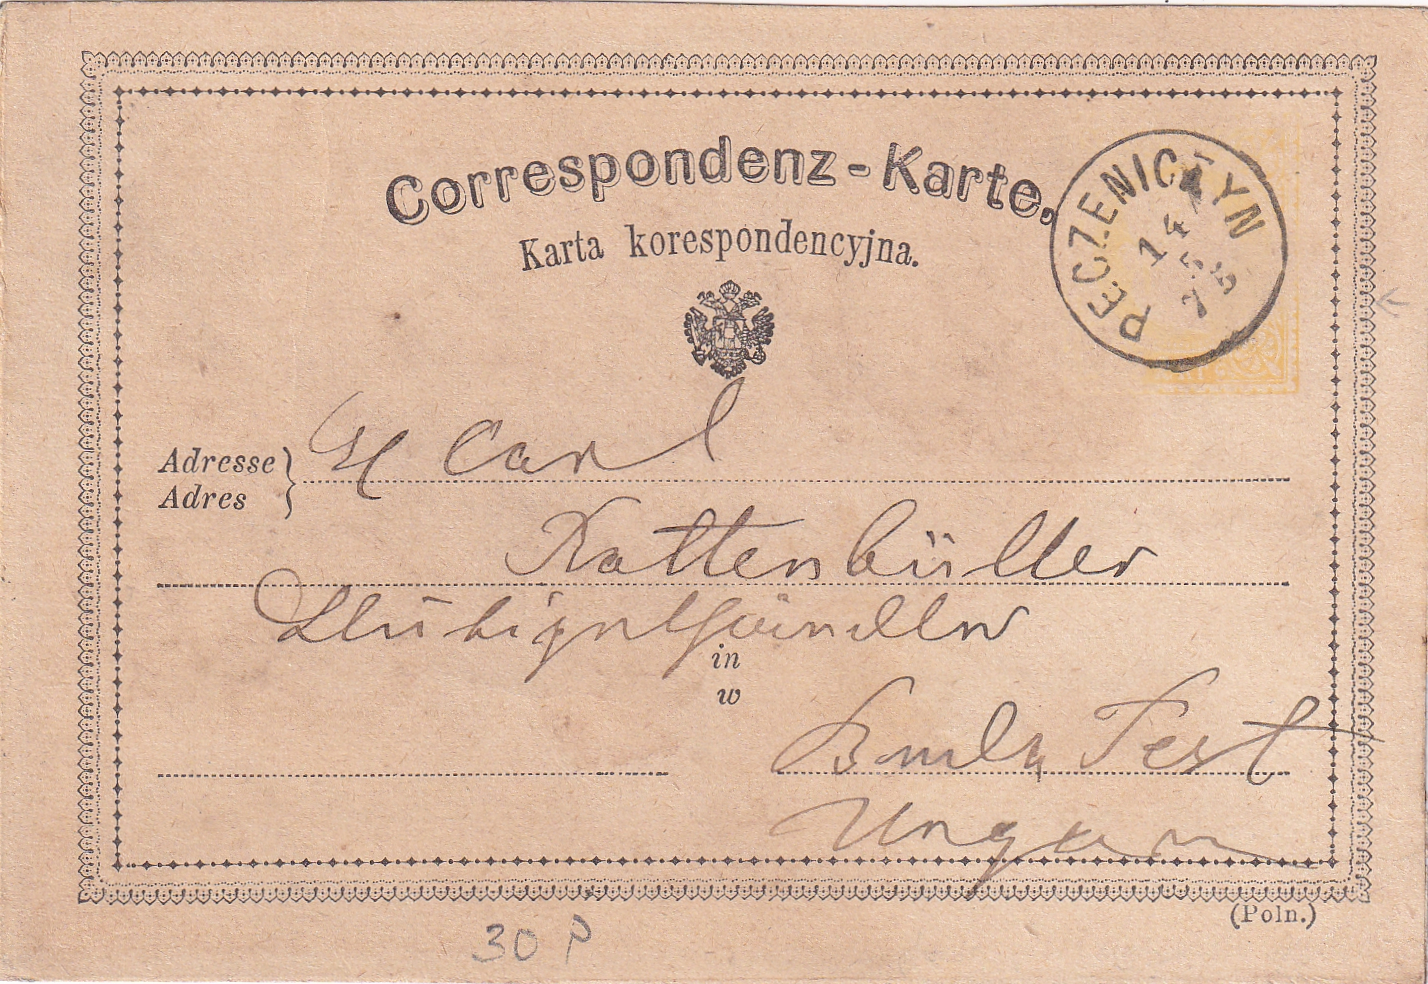 Correspondenz-Karte,
Karta korespondencyjna.
PECZENICZYN
14
5
75
Adresse
Adres
Carl
Kattenbüller
in
w
Buda Pest
Ungarn
(Poln.)
30 P